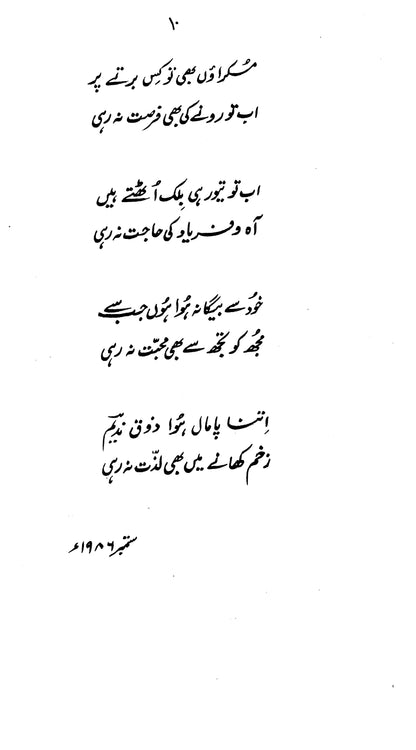 ۱۰
مُسکراؤں بھی تو کِس برتے پر
اب تو رونے کی بھی فرصت نہ رہی
اب تو تیور ہی بِلک اُٹھتے ہیں
آہ و فریاد کی حاجت نہ رہی
خُود سے بیگانہ ہُوا ہُوں جب سے
مُجھ کو تجھ سے بھی محبّت نہ رہی
اِتنا پامال ہُوا ذوق ندیمؔ
زخم کھانے میں بھی لذّت نہ رہی
ستمبر ۱۹۸۶ء